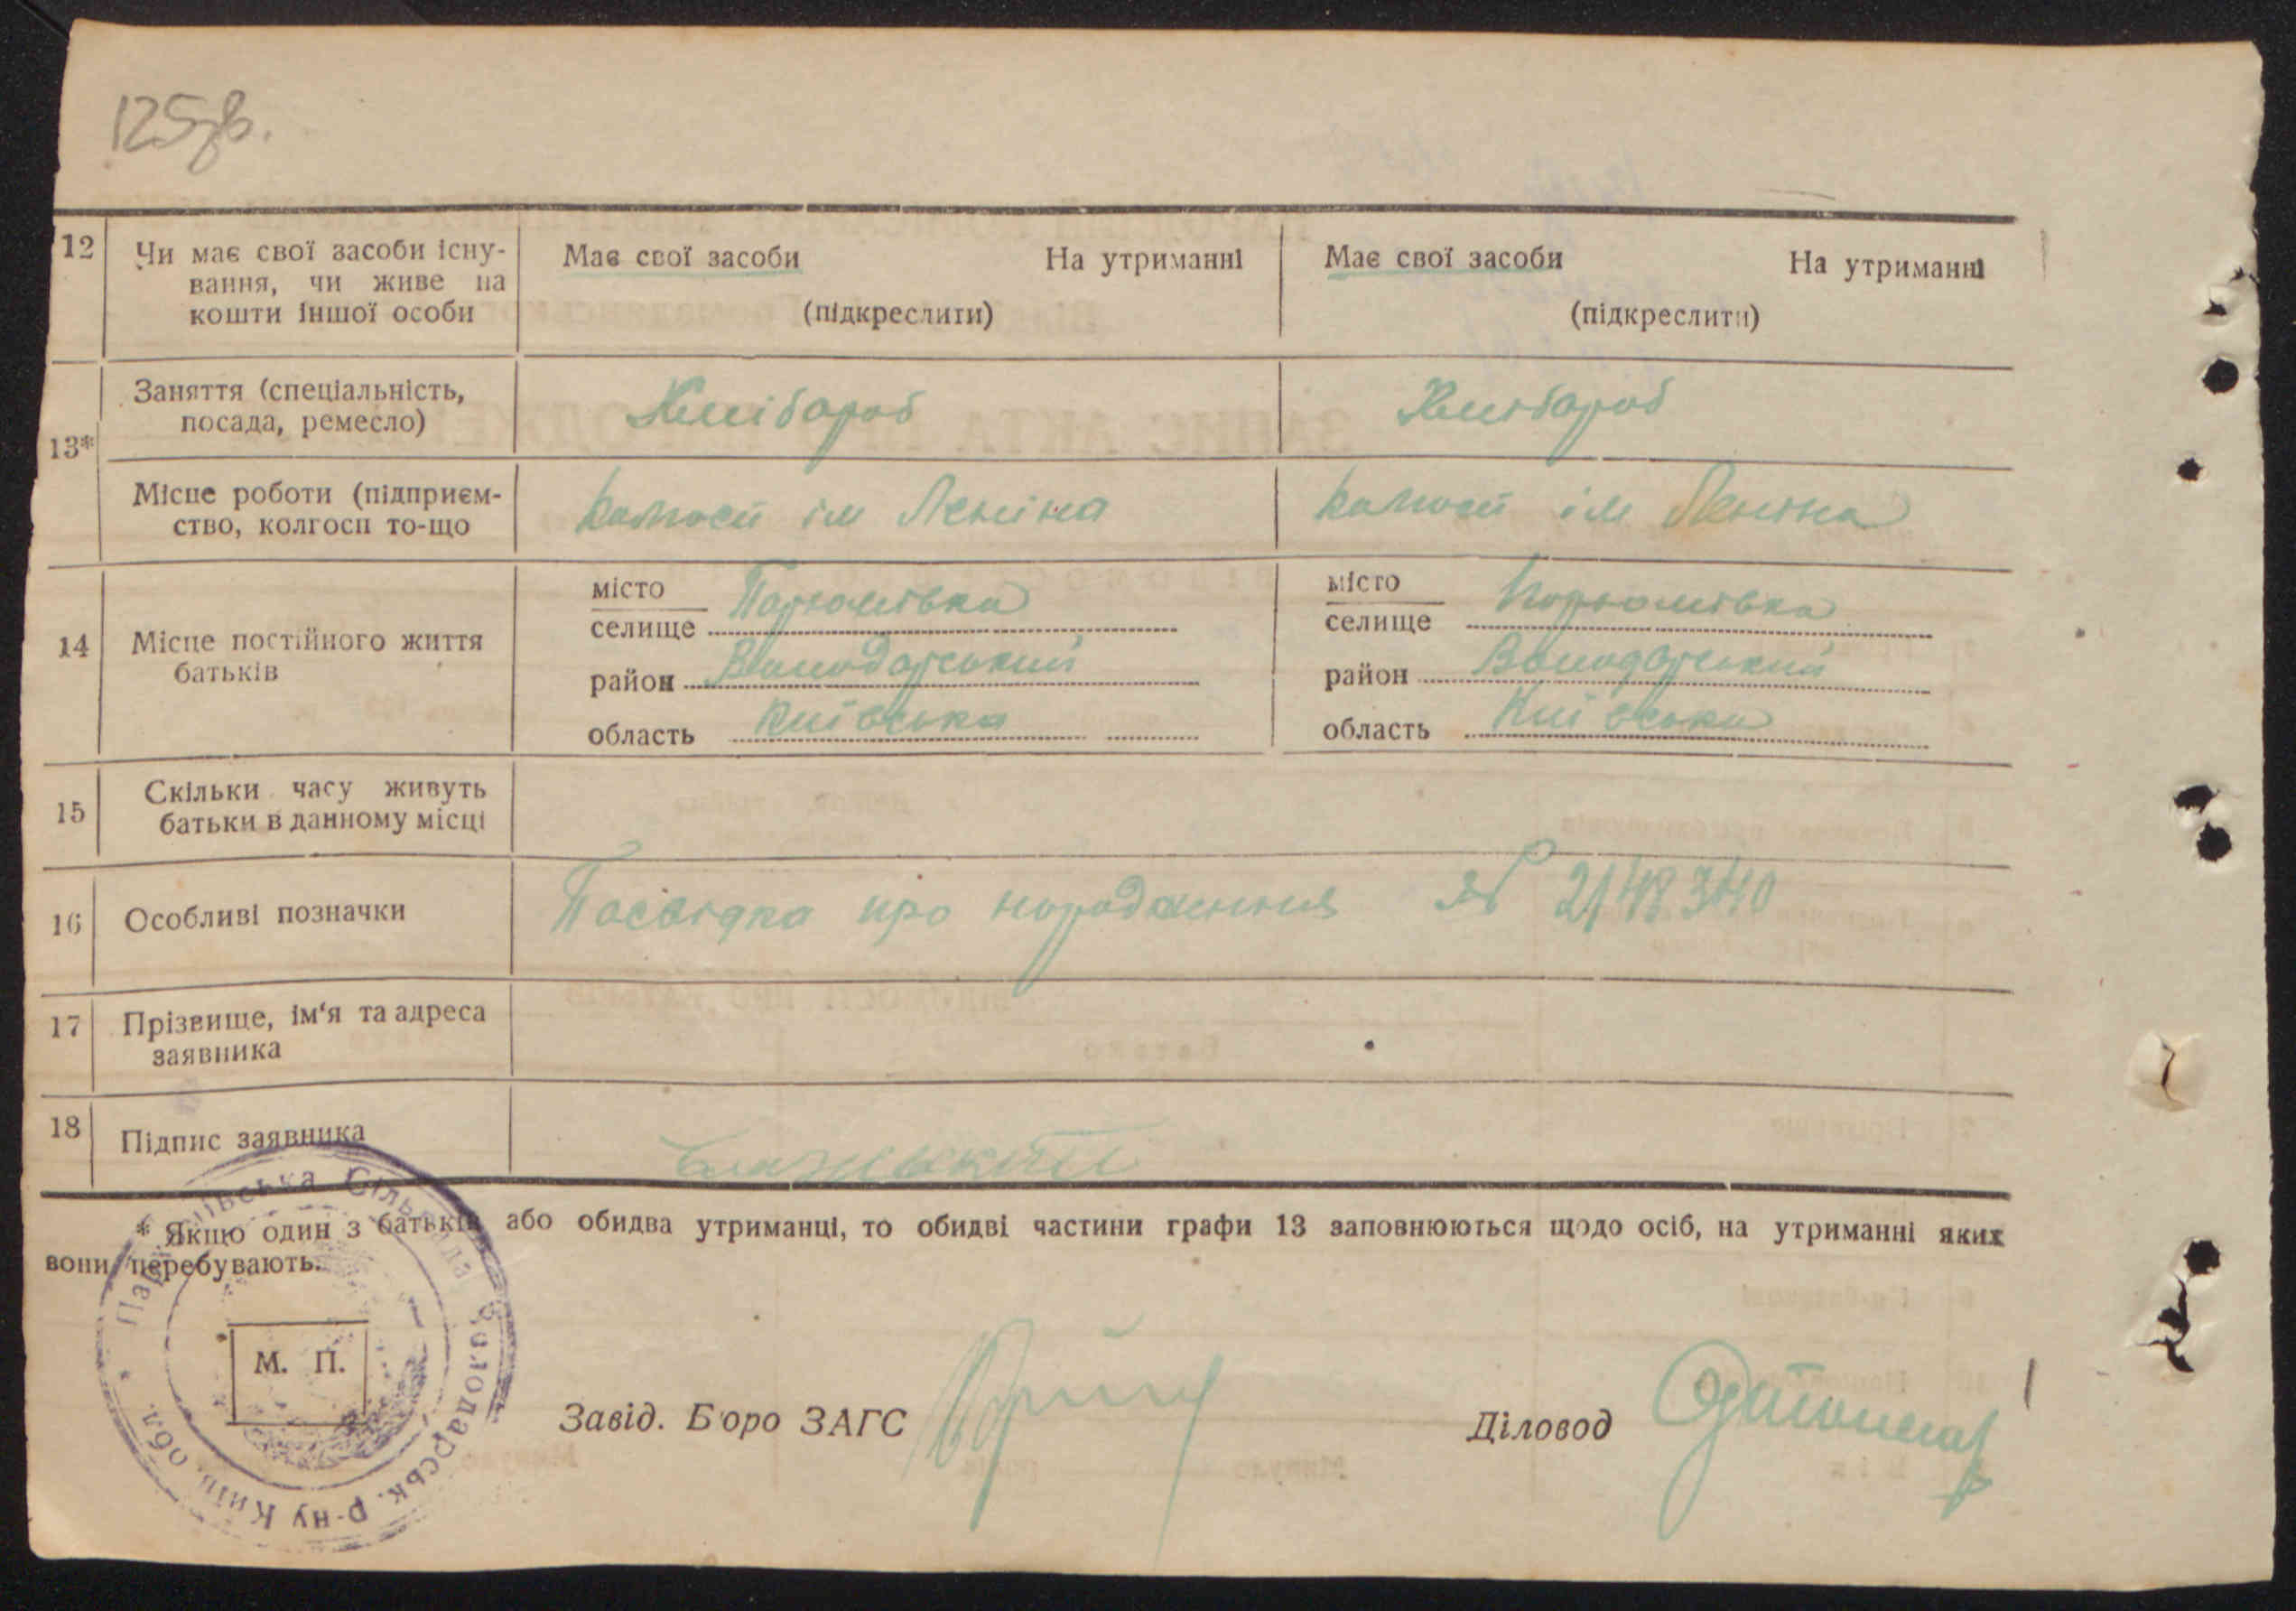 125зв.
12 Чи має свої засоби існу-
вання, чи живе на
кошти іншої особи
Має свої засоби На утриманні
(підкреслити)
Має свої засоби На утриманні
(підкреслити)
13*
Заняття (спеціальність,
посада, ремесло)
Хлібароб
Хлібароб
Місце роботи (підприєм-
ство, колгосп то-що
Колгосп ім Леніна
Колгосп ім Леніна
14 Місце постійного життя
батьків
місто
селище
район Володарський
область Київська
місто
селище
район Володарський
область Київська
15 Скільки часу живуть
батьки в данному місці
16 Особливі позначки
Посвідка про народження №
17 Прізвище, ім'я та адреса
заявника
18 Підпис заявника
* Якщо один з батьків або обидва утриманці, то обидві частини графи 13 заповнюються щодо осіб, на утриманні яких
вони перебувають.
Сільрада Володарськ. р-ну Київ. обл.
М. П.
Завід. Бюро ЗАГС
Діловод